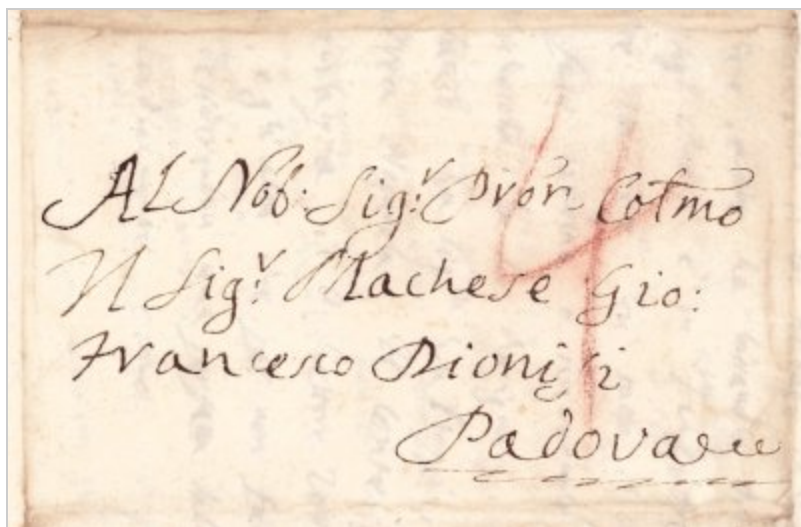 Al Nob: Sig.r Pron Colmo
Il Sig.r Machese Gio:
Francesco Dionisi
Padova
4